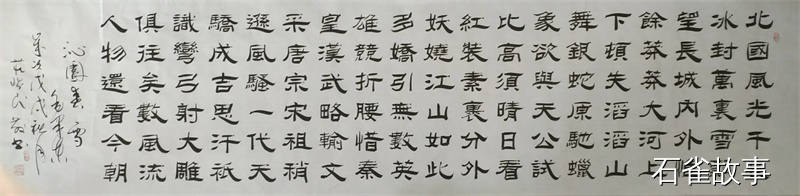 北國風光千
冰封萬裏雪
望長城內外
餘莽莽大河
下頓失滔滔山
舞銀蛇原馳蠟
象欲與天公試
比高須晴日看
紅裝素裹分外
妖嬈江山如此
多嬌引無數英
雄競折腰惜秦
皇漢武略輸文
采唐宗宋祖稍
遜風騷一代天
驕成吉思汗祇
識彎弓射大雕
俱往矣數風流
人物還看今朝
沁園春 雪
戊戌秋月
石雀故事